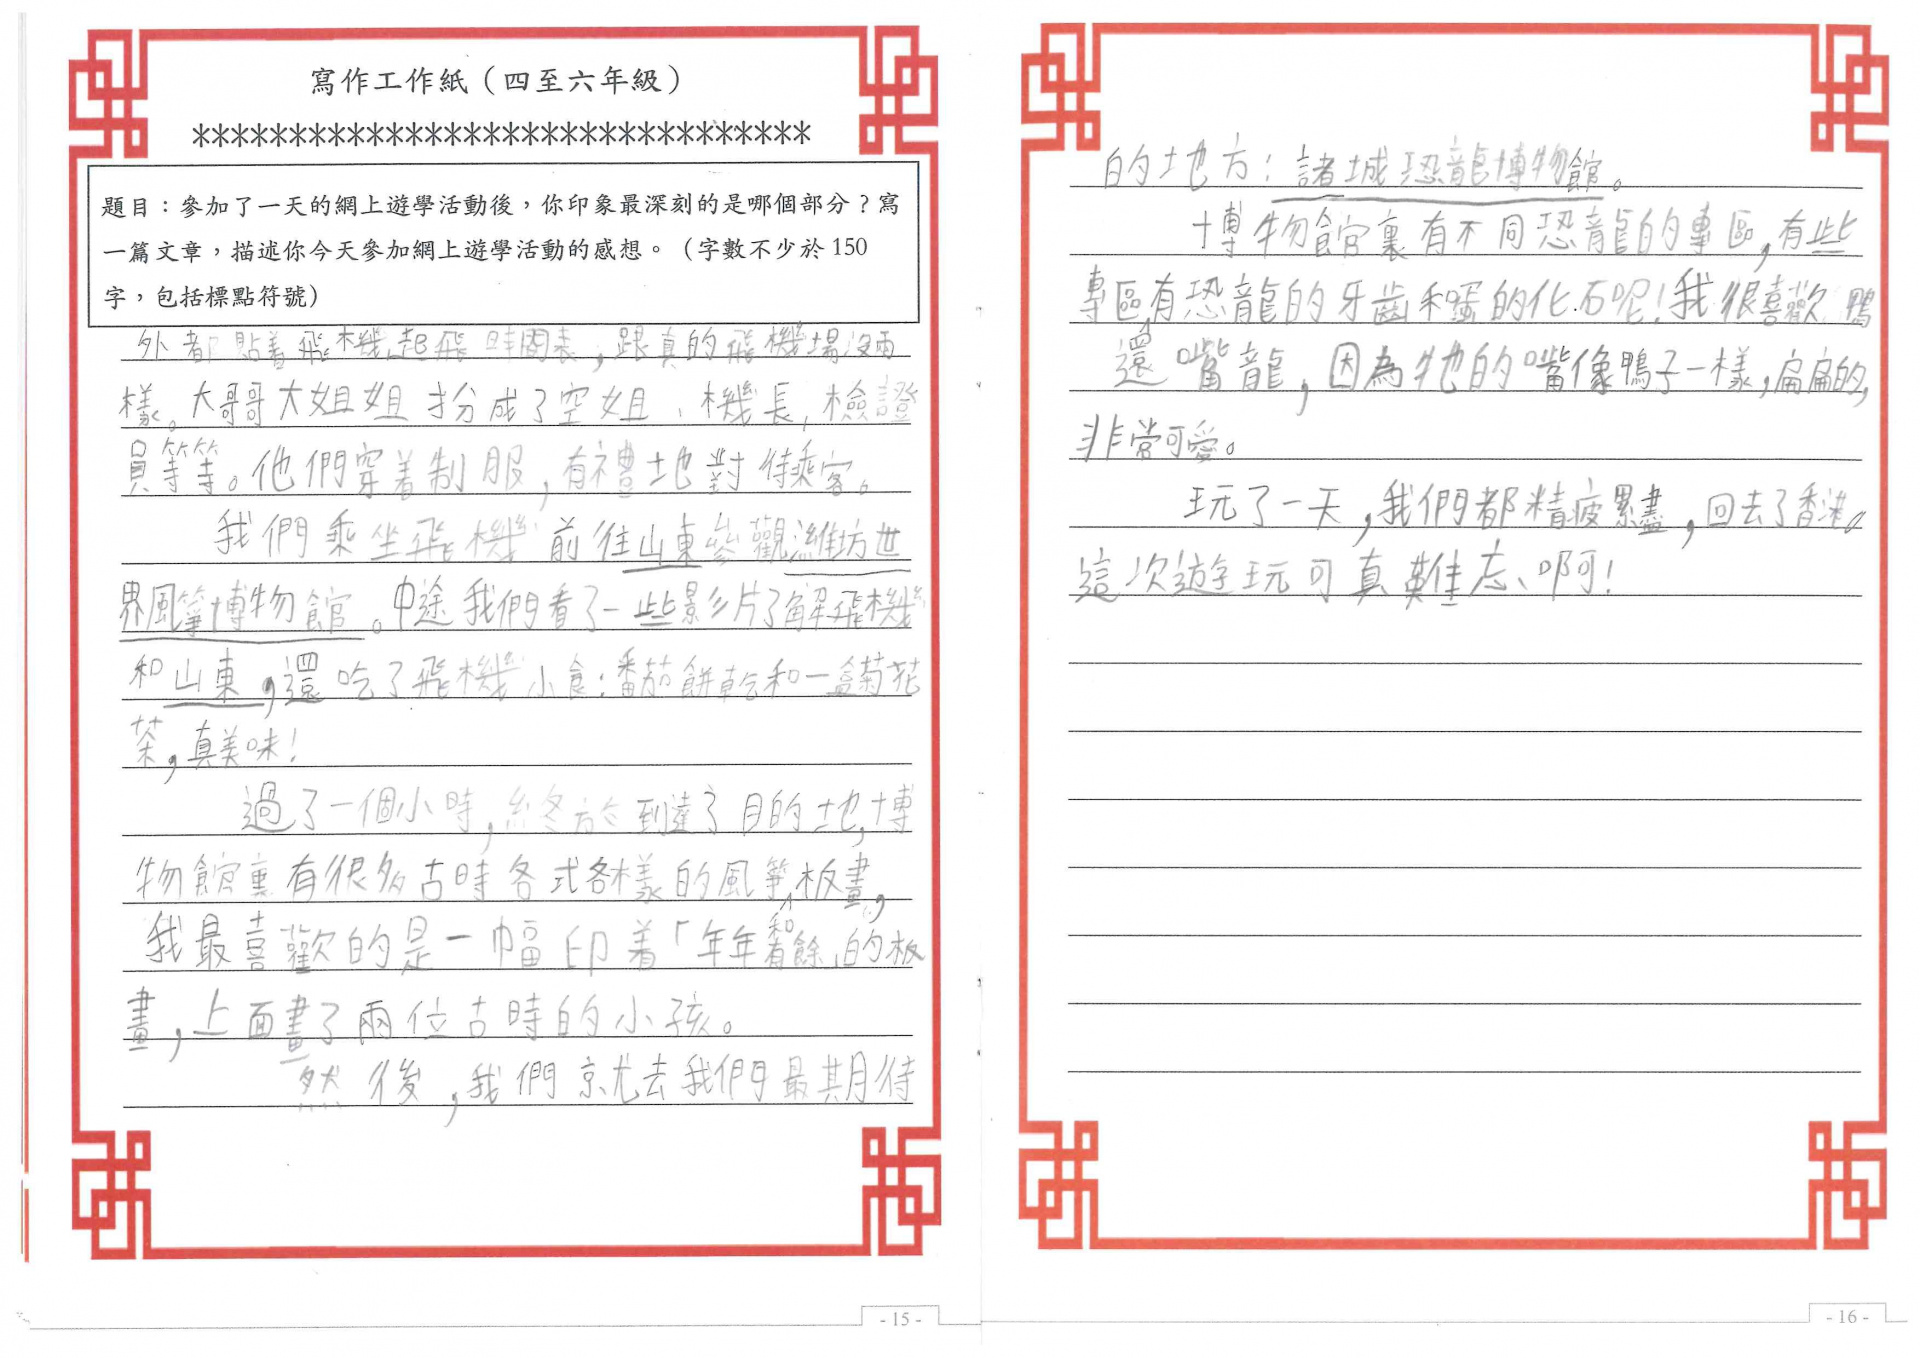 寫作工作紙（四至六年級）
********************************
題目：參加了一天的網上遊學活動後，你印象最深刻的是哪個部分？寫
一篇文章，描述你今天參加網上遊學活動的感想。（字數不少於 150
字，包括標點符號）
外都貼着飛機起飛時間表，跟真的飛機場沒兩
樣。大哥哥大姐姐扮成了空姐、機長，檢證
員等等。他們穿着制服，有禮地對待乘客。
我們乘坐飛機前往山東參觀濰坊世
界風箏博物館。中途我們看了一些影片了解飛機
和山東，還吃了飛機小食：番茄餅乾和一盒菊花
茶，真美味！
過了一個小時，終於到達了目的地，博
物館裏有很多古時各式各樣的風箏和板畫，
我最喜歡的是一幅印着「年年有餘」的板
畫，上面畫了兩位古時的小孩。
然後，我們就去我們最期待
- 15 -
的地方：諸城恐龍博物館。
博物館裏有不同恐龍的專區，有些
專區還有恐龍的牙齒和蛋的化石呢！我很喜歡鴨
嘴龍，因為牠的嘴像鴨子一樣，扁扁的，
非常可愛。
玩了一天，我們都精疲累盡，回去了香港。
這次遊玩可真難忘啊！
- 16 -